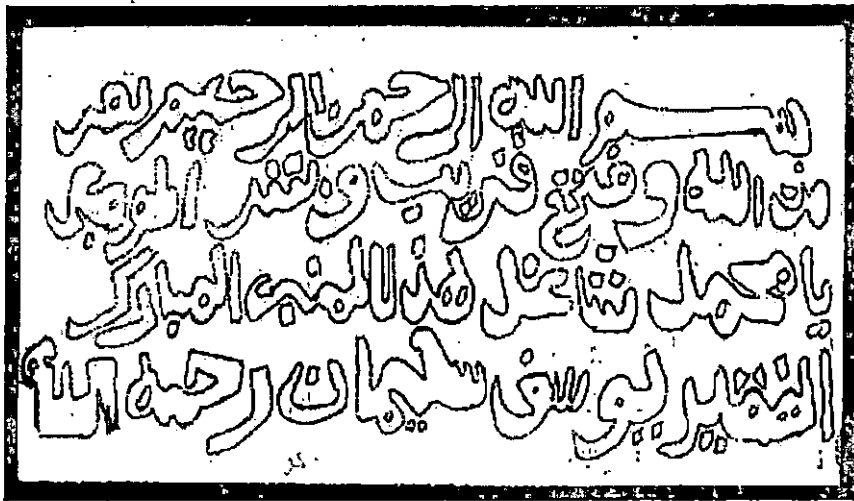 بسم الله الرحمن الرحيم نصر
من الله وفتح قريب وبشر المومنين
يا محمد هذا المنبر المبارك
الفقير يوسف سليمان رحمه الله